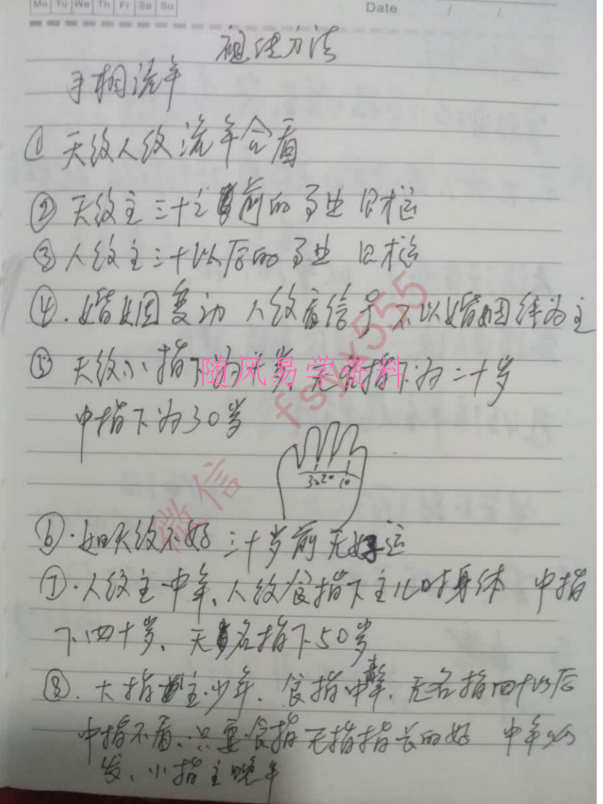 Mo Tu We Th Fr Sa Su
Date / /
方法
手相流年
① 天纹人纹流年合看
② 天纹主三十岁前的事业
③ 人纹主三十以后的事业
④.婚姻变动 人纹看信号 不以婚姻线为主
⑤ 天纹小指下为十岁,无名指下为二十岁
中指下为30岁
30 20 10
⑥.如天纹不好 三十岁前无好运
⑦.人纹主中年、人纹食指下主儿时身体 中指
下四十岁、无名指下50岁
⑧.大指主少年、食指中年、无名指四十以后
中指不看、只要食指无指指长的好 中年必
发、小指主晚年
随风易学资料
微信 fsyx555